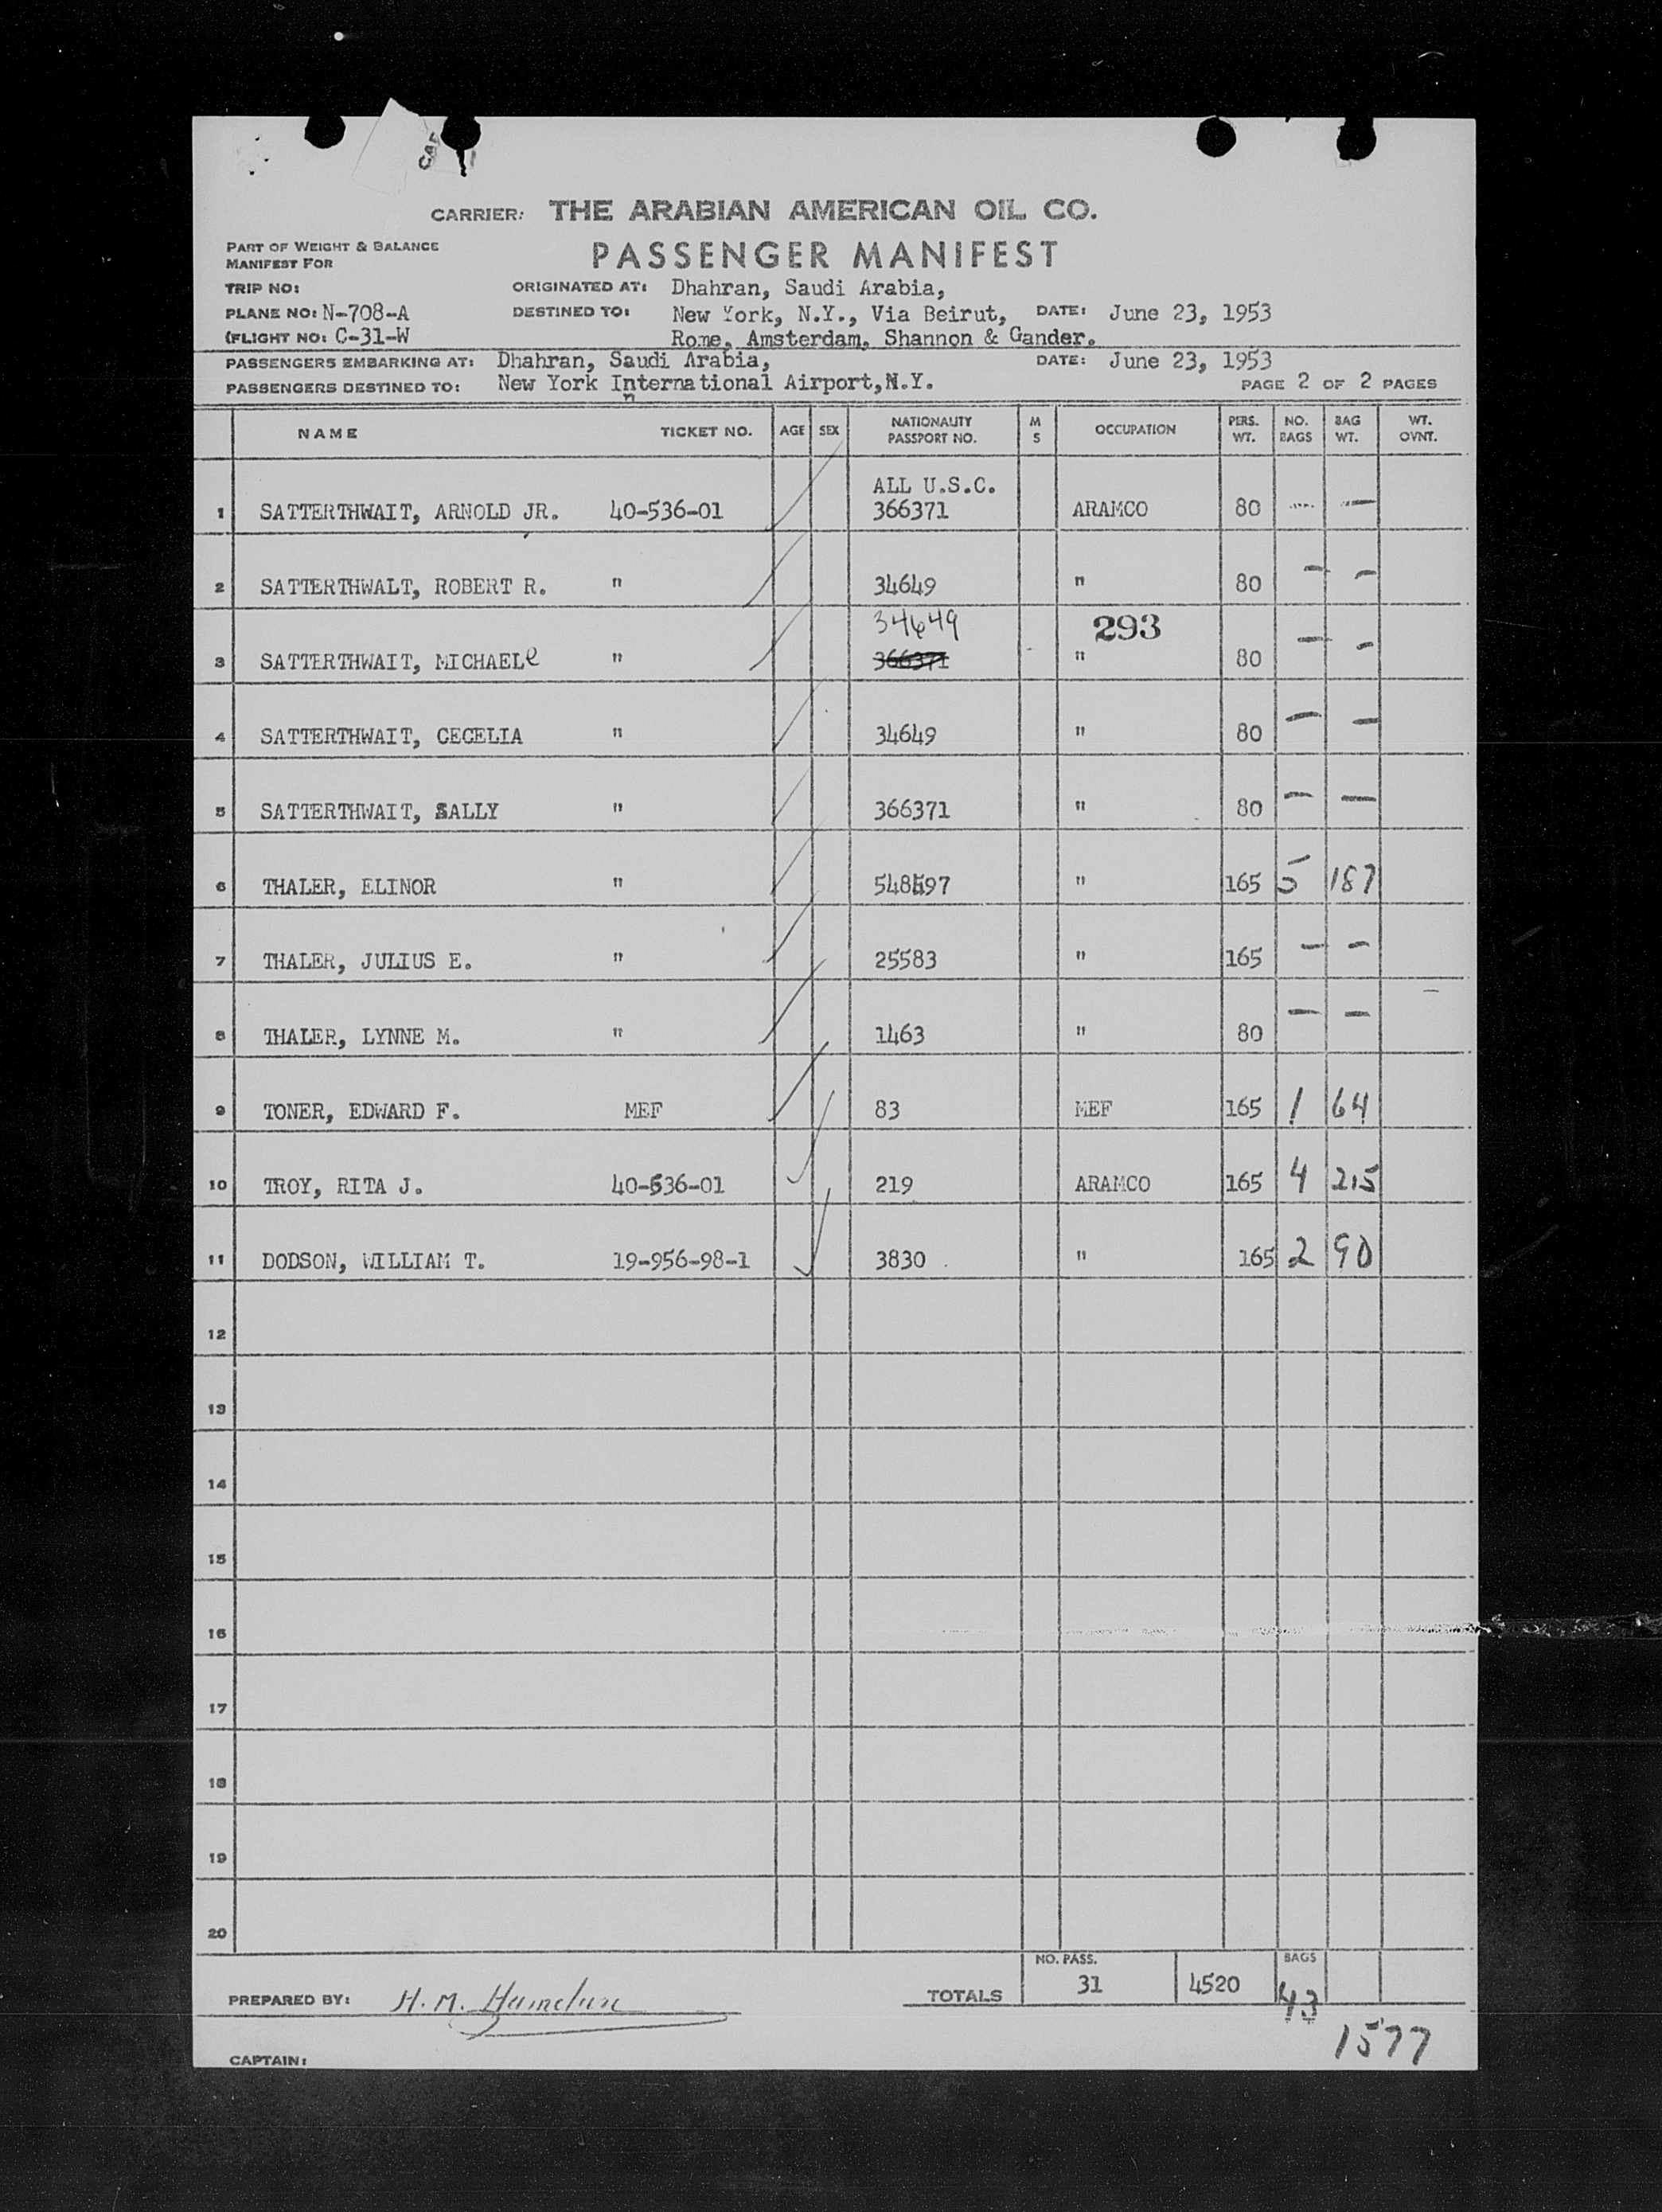 CARRIER: THE ARABIAN AMERICAN OIL CO.
PART OF WEIGHT & BALANCE
MANIFEST FOR
PASSENGER MANIFEST
TRIP NO: ORIGINATED AT: Dhahran, Saudi Arabia,
PLANE NO: N-708-A DESTINED TO: New York, N.Y., Via Beirut, DATE: June 23, 1953
(FLIGHT NO: C-31-W Rome, Amsterdam, Shannon & Gander.
PASSENGERS EMBARKING AT: Dhahran, Saudi Arabia, DATE: June 23, 1953
PASSENGERS DESTINED TO: New York International Airport,N.Y. PAGE 2 OF 2 PAGES
NAME TICKET NO. AGE SEX NATIONALITY PASSPORT NO. M S OCCUPATION PERS. WT. NO. BAGS BAG WT. WT. OVNT.
ALL U.S.C.
1 SATTERTHWAIT, ARNOLD JR. 40-536-01 366371 ARAMCO 80 — —
2 SATTERTHWALT, ROBERT R. " 34649 " 80 — —
34649 293
3 SATTERTHWAIT, MICHAELe " 366371 " 80 — —
4 SATTERTHWAIT, CECELIA " 34649 " 80 — —
5 SATTERTHWAIT, SALLY " 366371 " 80 — —
6 THALER, ELINOR " 548597 " 165 5 187
7 THALER, JULIUS E. " 25583 " 165 — —
8 THALER, LYNNE M. " 1463 " 80 — —
9 TONER, EDWARD F. MEF 83 MEF 165 1 64
10 TROY, RITA J. 40-536-01 219 ARAMCO 165 4 215
11 DODSON, WILLIAM T. 19-956-98-1 3830 " 165 2 90
12
13
14
15
16
17
18
19
20
NO. PASS. BAGS
PREPARED BY: H. M. TOTALS 31 4520 43
1577
CAPTAIN: